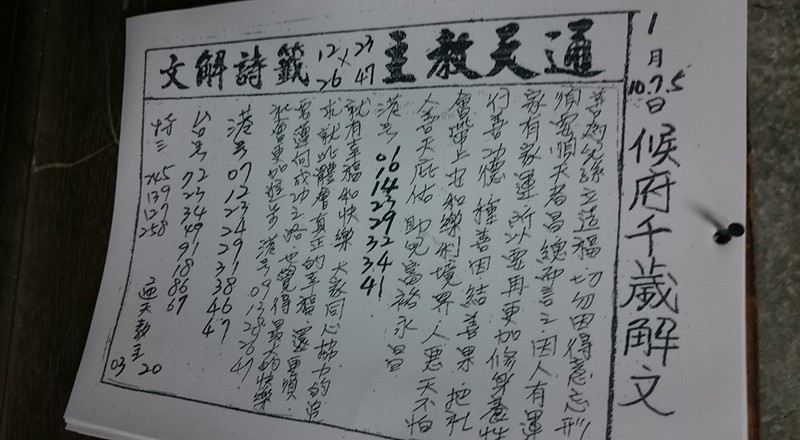 1月
10.7.5日
候府千歲解文
通天教主
12 × 23
26 47
籤詩解文
兒孫立造福 切勿因得意忘形
順天者昌總而言之因人有運
家有家運 所以要再更加修身養性
行善功德 種善因結善果 把社
會帶上安和樂利境界 人惡天不怕
人善天庇佑 助兒富裕永昌
港号 06 14 23 29 32 34 41
就有幸福和快樂 大家同心協力的追
求就此體會真正的幸福 還
成功之路 也覺得最大的快樂
就會更加進步 港号 09 13 28 26 47
港号 07 12 23 24 29 31 38 46 47
台号 72 23 34 49 91 18 86 67
特三 745 139 127 258
通天教主 03 20